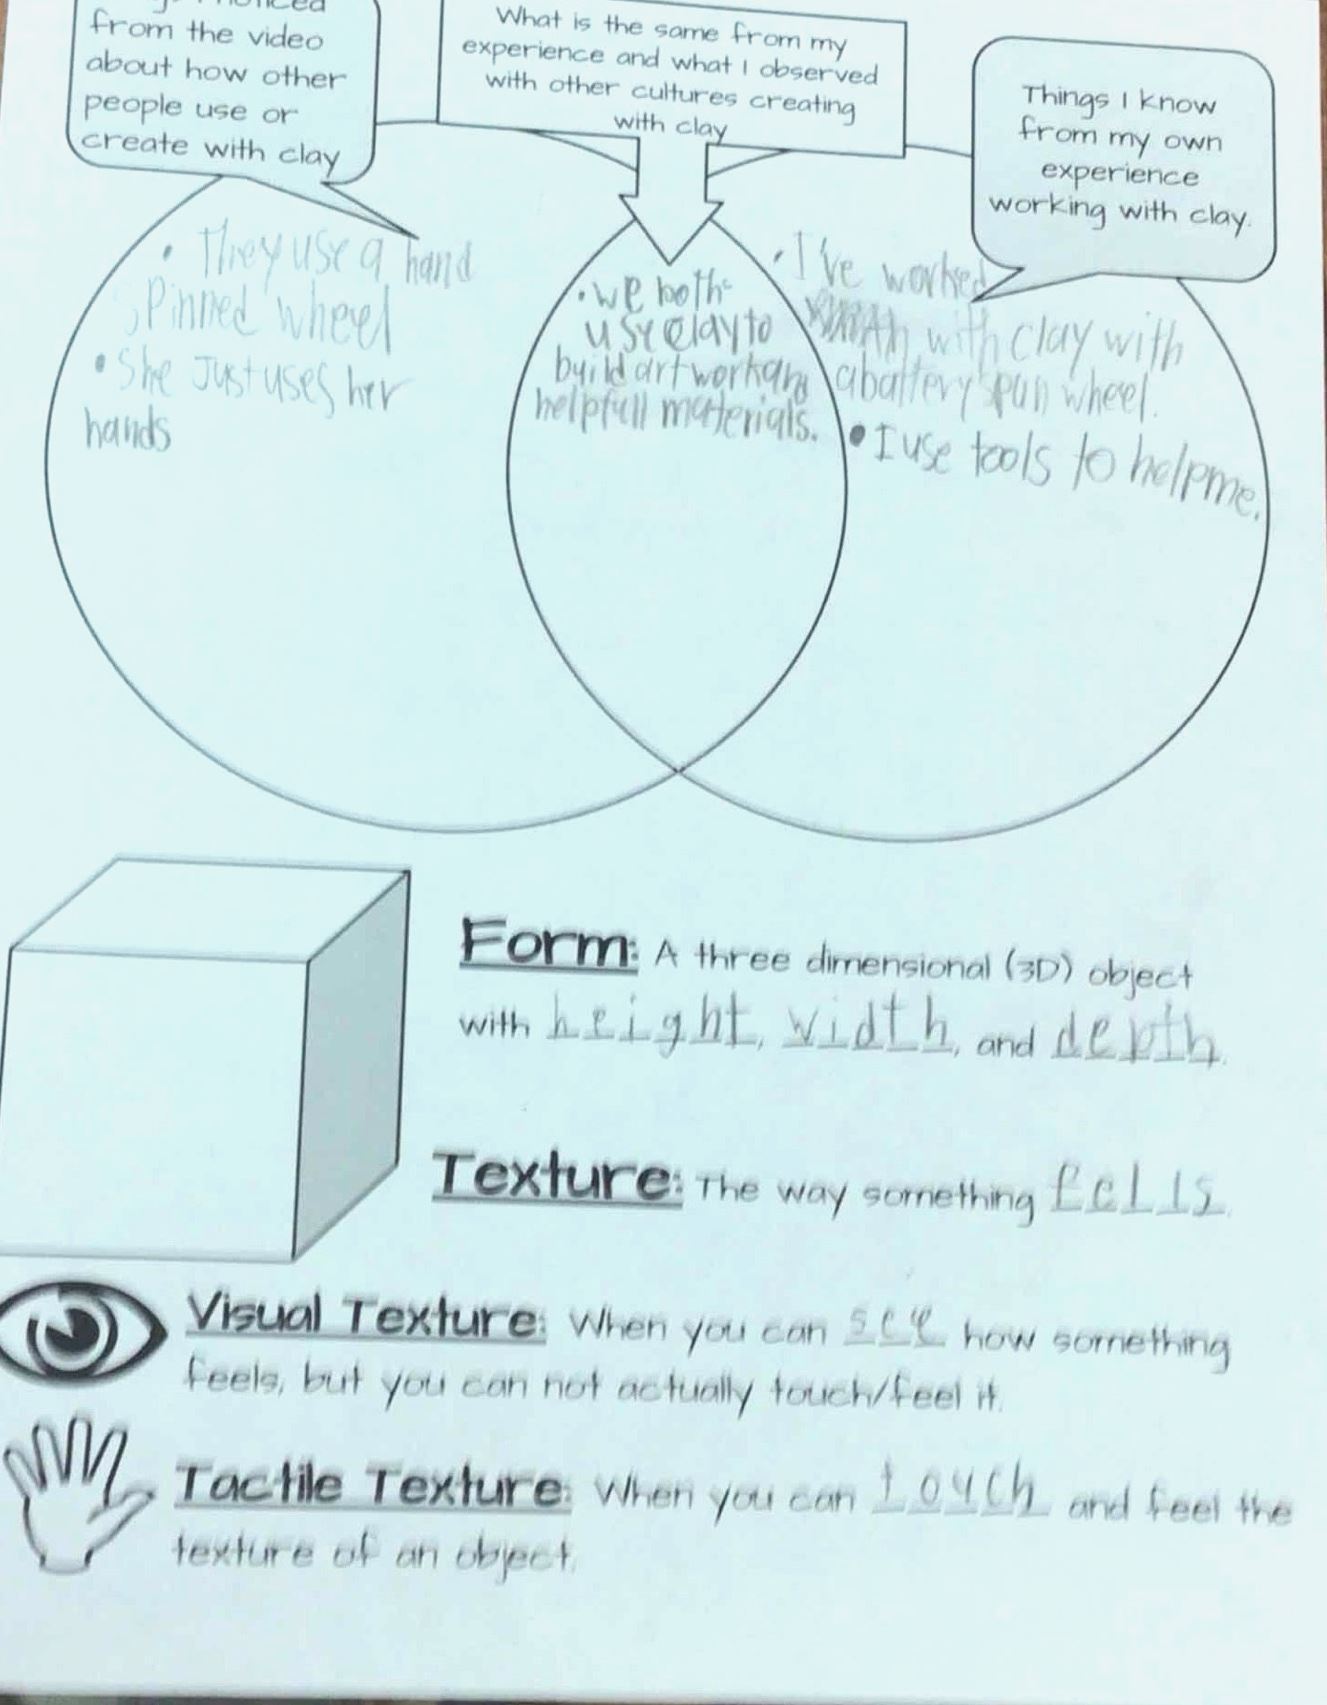 from the video
about how other
people use or
create with clay
What is the same from my
experience and what I observed
with other cultures creating
with clay
Things I know
from my own
experience
working with clay.
• They use a hand
spinned wheel
• She Just uses her
hands
• we both
use clay to
build artwork and
helpfull materials.
• I've worked
with clay with
a battery spun wheel.
• I use tools to help me.
Form: A three dimensional (3D) object
with height, width, and depth.
Texture: The way something fells.
Visual Texture: When you can see how something
feels, but you can not actually touch/feel it.
Tactile Texture: When you can touch and feel the
texture of an object.